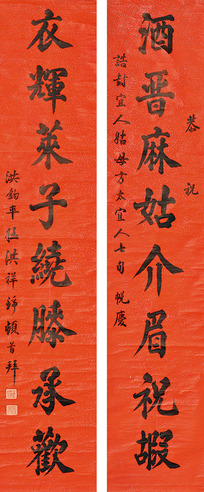 恭祝
誥封宜人姑母方太宜人七旬帨慶
酒晋麻姑介眉祝嘏
衣輝萊子繞膝承歡
洪鈞率侄洪祥錦頓首拜